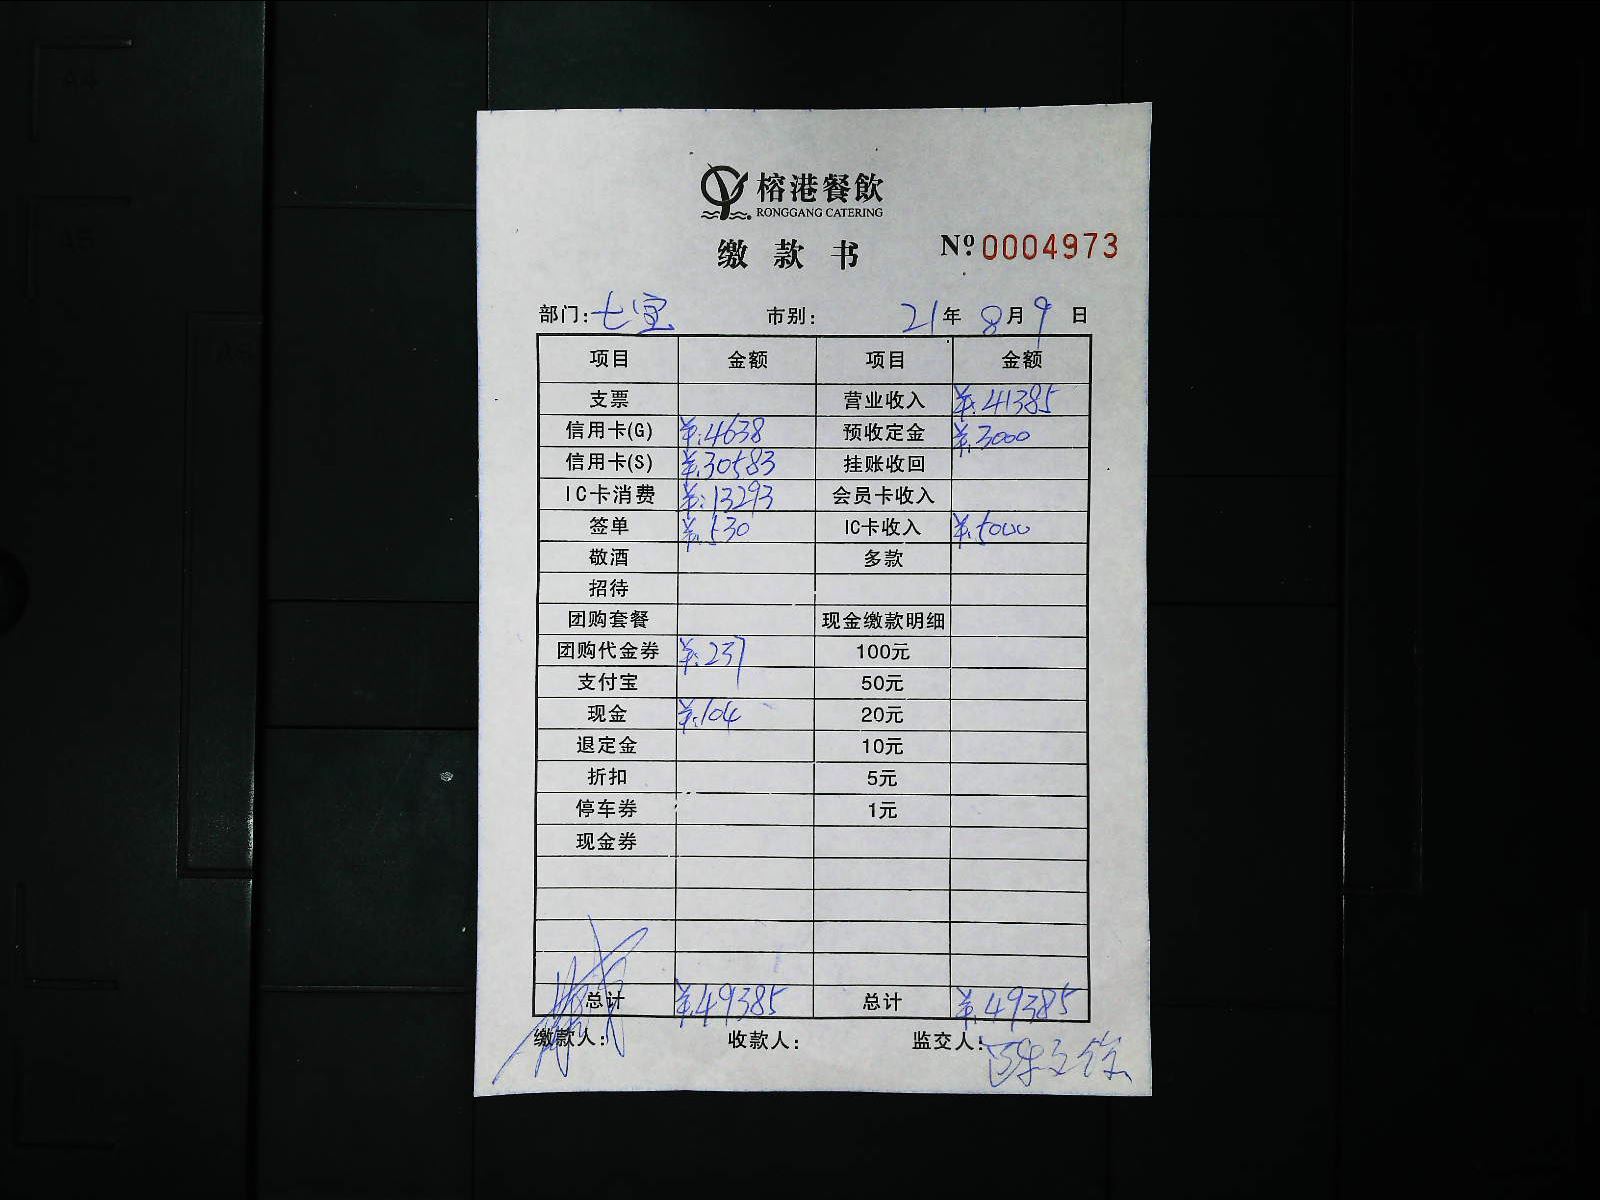 榕港餐飲
RONGGANG CATERING
缴款书 Nº.0004973
部门:七宝 市别: 21年8月9日
项目 金额 项目 金额
支票 营业收入 ¥:41385
信用卡(G) ¥:4638 预收定金 ¥:3000
信用卡(S) ¥:30583 挂账收回
IC卡消费 ¥:13293 会员卡收入
签单 ¥:530 IC卡收入 ¥:5000
敬酒 多款
招待
团购套餐 现金缴款明细
团购代金券 ¥:237 100元
支付宝 50元
现金 ¥:104 20元
退定金 10元
折扣 5元
停车券 1元
现金券
总计 ¥:49385 总计 ¥:49385
缴款人: 收款人: 监交人: